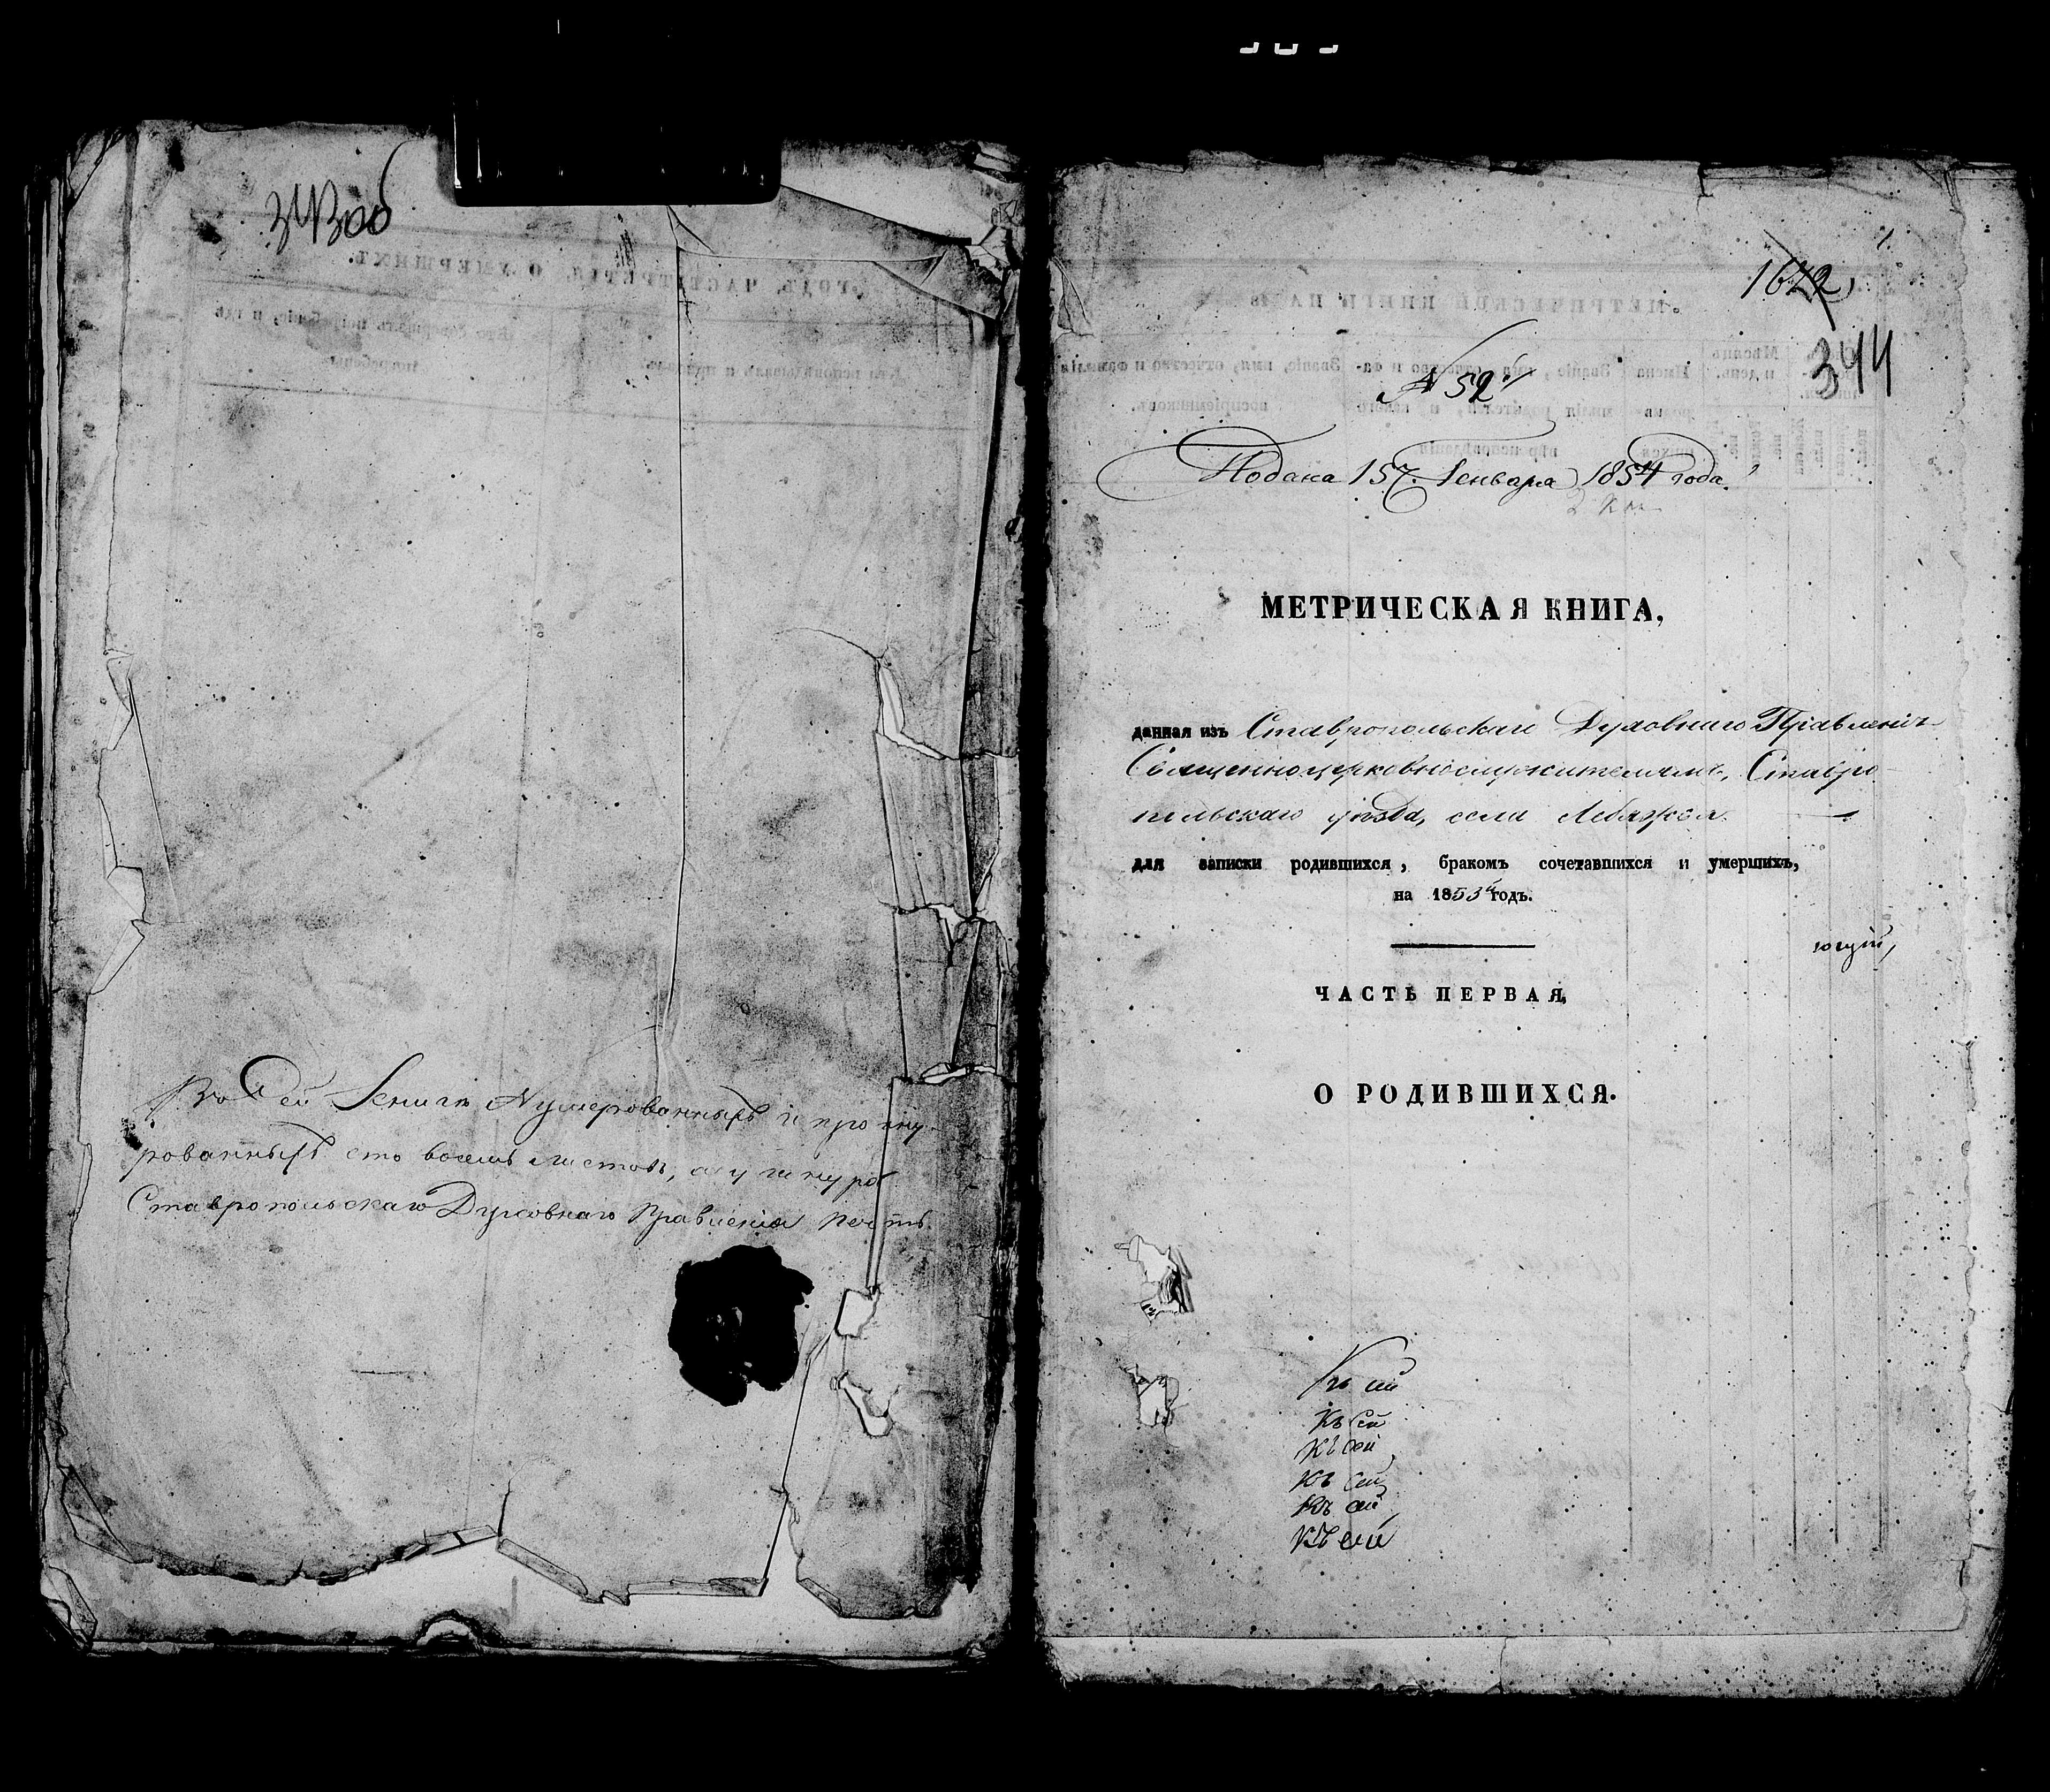 343 об
Во Сей Книги Нумерованныхъ и прошну-
рованныхъ сто восемь листовъ, а у шнура
Ставропольскаго Духовнаго Правленія печать.
1622
1
344
№ 52й
Подана 15 Генваря 1854 года.
МЕТРИЧЕСКАЯ КНИГА,
данная изъ Ставропольскаго Духовнаго Правленія
Священноцерковнослужителямъ, Ставро-
польскаго уѣзда, села Лебяжья
для записки родившихся, бракомъ сочетавшихся и умершихъ,
на 1853й годъ.
ющій,
ЧАСТЬ ПЕРВАЯ,
О РОДИВШИХСЯ.
Къ сей
Къ сей
Къ сей
Къ сей
Къ сей
Къ сей